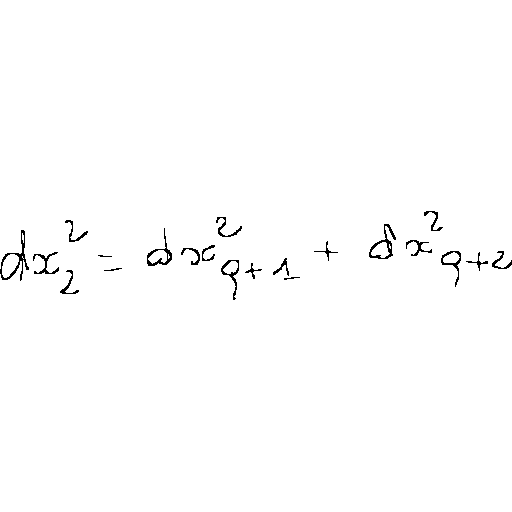 $dx_2^2 = dx_{q+1}^2 + dx_{q+2}^2$